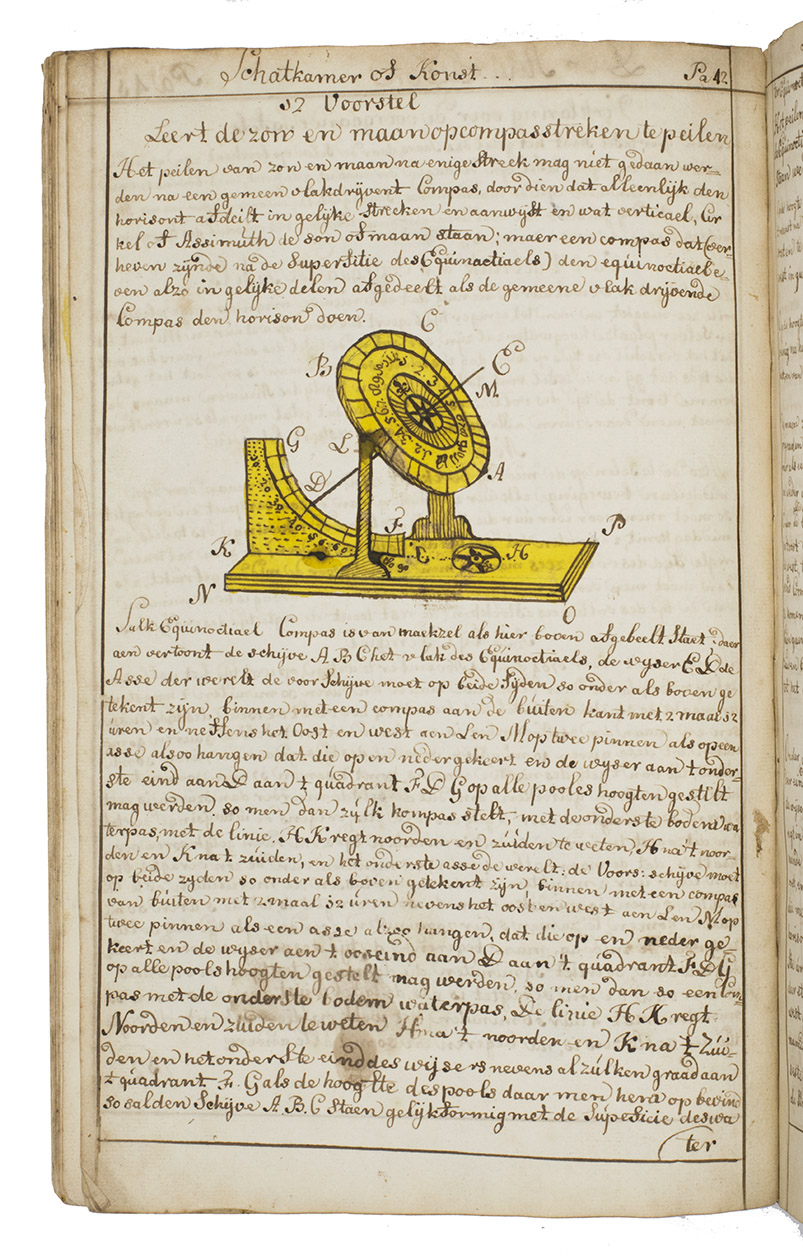 Schatkamer of Konst . . . Pa 42
32 Voorstel
Leert de zon en maan op compasstreken te peilen
Het peilen van zon en maan na enige Streek mag niet gedaan wer-
den na een gemeen vlakdrijvent Compas, door dien dat alleenlijk den
horisont afdeilt in gelijke strecken en aanwijst en wat verticael, Cir
kel of Assimuth de son of maan staan; maer een compas dat (ver-
heven zijnde na de Superfitie des Equinactiaels) den equinoctiaele
ven alzo in gelijke delen afgedeelt als de gemeene vlak drijvende
Compas den horison doen.
C
B
E
M
G
L
A
D
F
P
K
E
H
N
O
Sulk Equinoctiael Compas is van maekzel als hier boven afgebeelt Staet, daer
aen vertoont de schijve A B C het vlak des Equinoctiaels, de wyser E D de
Asse der werelt de voor Schijve moet op beide Syden so onder als boven ge
tekent zijn, binnen met een compas aan de buiten kant met 2 maal 12
uren en neffens het Oost en west aen L en M op twee pinnen als op een
asse alsoo hangen dat die op en nedergekeert en de wyser aan t onder-
ste eind aan D aan t quadrant F D G op alle pooles hoogten gestelt
mag werden. so men dan zulk kompas stelt, met de onderste bodem wa
terpas, met de linie. H K regt noorden en zuiden te weten, H na 't noor-
den en K na t zuiden, en het onderste asse de werelt: de Voors: schijve moet
op beide zyden so onder als boven getekent zijn, binnen met een compas
van buiten met 2 maal 12 uren nevens het oost en west aen L en M op
twee pinnen als een asse alzoo hangen, dat die op en neder ge-
keert en de wyser aen t ooseind aan D aan 't quadrant F D G
op alle pools hoogten gestelt mag werden, so men dan so een Com-
pas met de onderste bodem waterpas, De linie H K regt
Noorden en zuiden te weten H na 't noorden en K na t Zui-
den en het onderste eind des wijsers nevens al zulken graad aan
t quadrant F. G als de hoogste des pools daar men hem op bevind
so sal den Schijve A. B. C Staen gelijkformig met de Supeficie des wa
ter